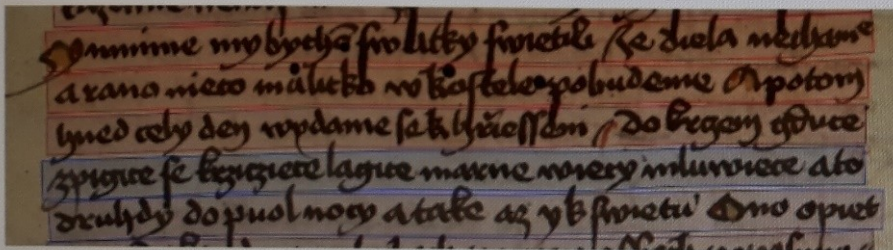 Mnime mybychō swatky swietili Ze diela nechame
a rano nieco malicko w kostele pobudeme A potom
hned cely den wydame se k hriessēni do krczem gducē
zpigice se krziczice lagice marne wiecy mluwiece a to
druhdy do puol nocy a take az yk swietu Ono opiet